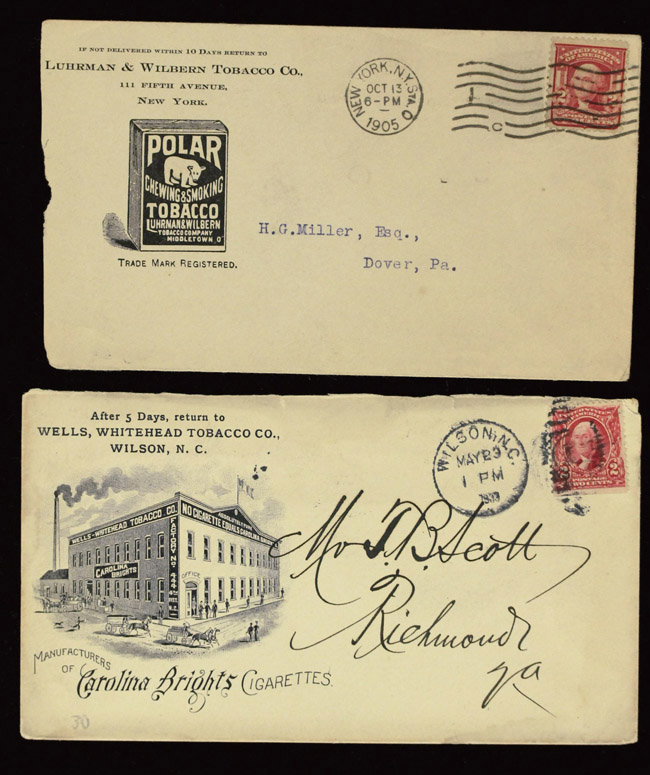 IF NOT DELIVERED WITHIN 10 DAYS RETURN TO
LUHRMAN & WILBERN TOBACCO CO.,
111 FIFTH AVENUE,
NEW YORK.
POLAR
CHEWING & SMOKING
TOBACCO
LUHRMAN & WILBERN
TOBACCO COMPANY
MIDDLETOWN, O
TRADE MARK REGISTERED.
NEW YORK, N.Y. STA. O
OCT 13
6-PM
1905
C
UNITED STATES
OF AMERICA
2
H.G.Miller, Esq.,
Dover, Pa.
After 5 Days, return to
WELLS, WHITEHEAD TOBACCO CO.,
WILSON, N. C.
WELLS-WHITEHEAD TOBACCO CO.
NO CIGARETTE EQUALS CAROLINA
CAROLINA
BRIGHTS
FACTORY NO. 444
OFFICE
MANUFACTURERS
OF
Carolina Brights CIGARETTES.
WILSON, N.C.
MAY 23
1 PM
POSTAGE
TWO CENTS
2
Mr T. B. Scott
Richmond
Va
30